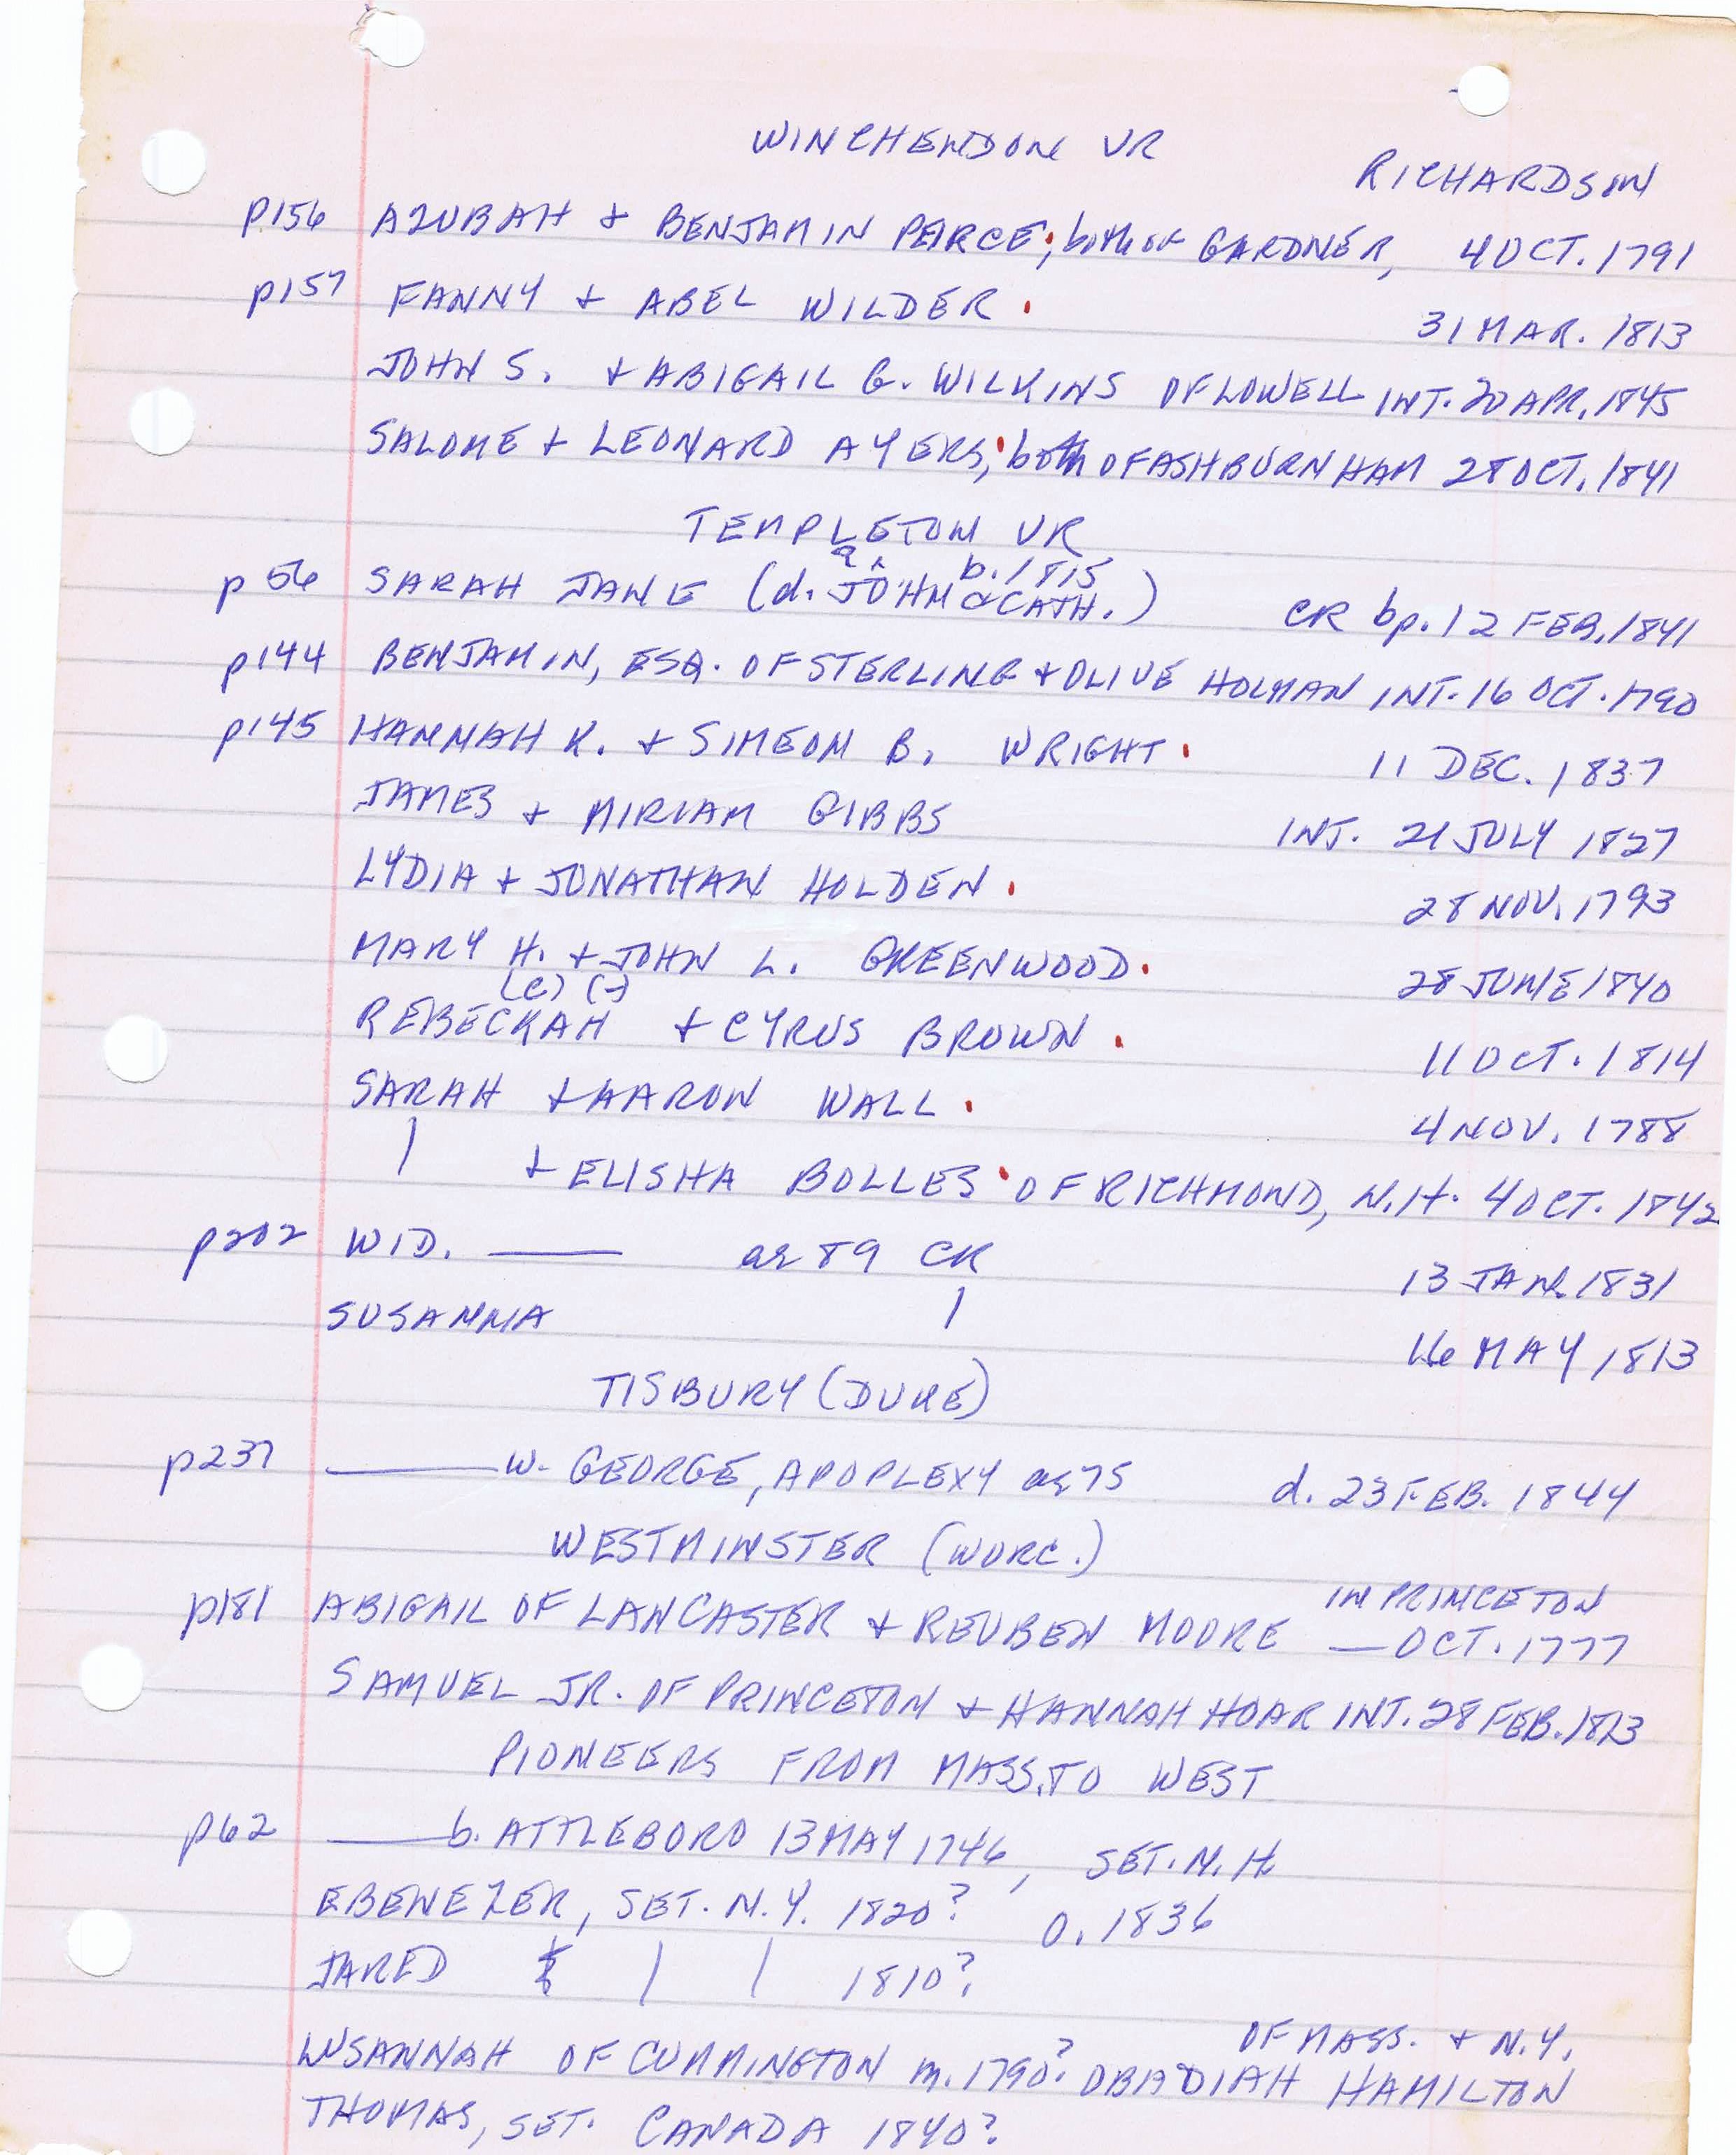 WINCHENDON VR
RICHARDSON
p156 AZUBAH + BENJAMIN PEIRCE; both of GARDNER, 4 OCT. 1791
p157 FANNY + ABEL WILDER. 31 MAR. 1813
JOHN S. + ABIGAIL G. WILKINS OF LOWELL INT. 20 APR. 1845
SALOME + LEONARD AYERS; both OF ASHBURNHAM 28 OCT. 1841
TEMPLETON VR
b. 1815
p 56 SARAH JANE (d. JOHN & CATH.) CR bp. 12 FEB. 1841
p144 BENJAMIN, ESQ. OF STERLING + OLIVE HOLMAN INT. 16 OCT. 1790
p145 HANNAH K. + SIMEON B. WRIGHT. 11 DEC. 1837
JAMES + MIRIAM GIBBS INT. 21 JULY 1827
LYDIA + JONATHAN HOLDEN. 28 NOV. 1793
MARY H. + JOHN L. GREENWOOD. 28 JUNE 1840
(C) (-)
REBECKAH + CYRUS BROWN. 11 OCT. 1814
SARAH + AARON WALL. 4 NOV. 1788
| + ELISHA BOLLES OF RICHMOND, N.H. 4 OCT. 1842
p202 WID. —— ae 89 CR 13 JAN. 1831
SUSANNA | 16 MAY 1813
TISBURY (DUKE)
p237 —— w. GEORGE, APOPLEXY ae 75 d. 23 FEB. 1844
WESTMINSTER (WORC.)
IN PRINCETON
p181 ABIGAIL OF LANCASTER + REUBEN MOORE — OCT. 1777
SAMUEL JR. OF PRINCETON + HANNAH HOAR INT. 28 FEB. 1813
PIONEERS FROM MASS. TO WEST
p62 —— b. ATTLEBORO 13 MAY 1746, SET. N.H.
EBENEZER, SET. N.Y. 1820? O. 1836
JARED | | 1810?
OF MASS. + N.Y.
LUSANNAH OF CUMMINGTON m. 1790? OBADIAH HAMILTON
THOMAS, SET. CANADA 1840?